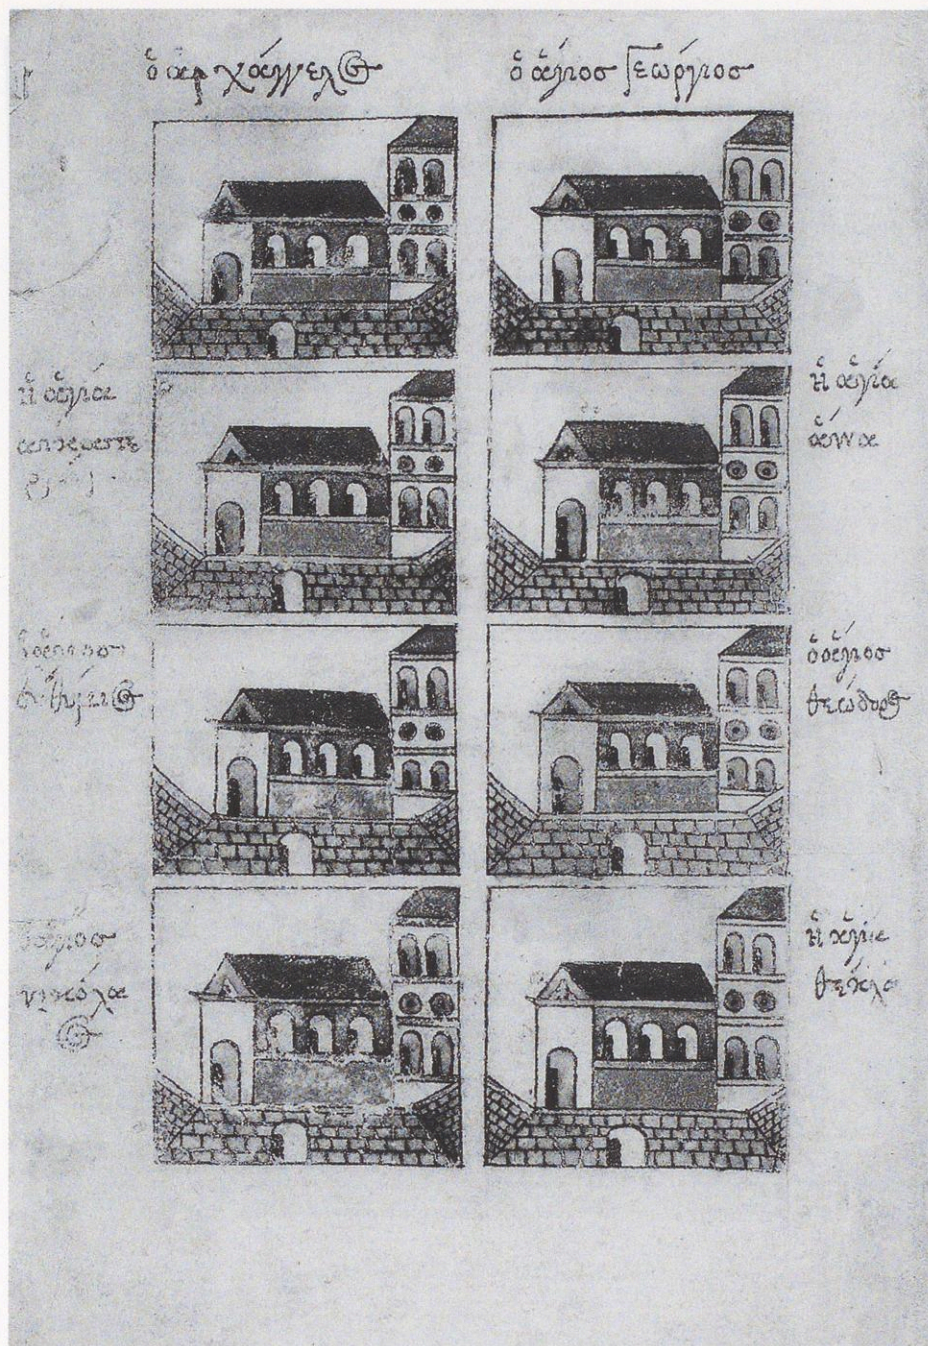 ὁ ἀρχάγγελος
ὁ ἅγιος Γεώργιος
ἡ ἁγία
ἡ ἁγία
ἄννα
ὁ ἅγιος
ὁ ἅγιος
θεόδορος
ὁ ἅγιος
νικόλα
ος
ἡ ἁγία
θέκλα